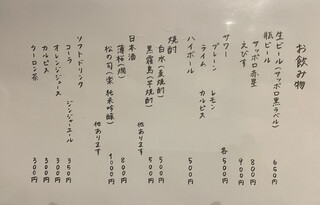 お飲み物
生ビール(サッポロ黒ラベル) 650円
瓶ビール
サッポロ赤星 800円
えびす 900円
サワー 各500円
プレーン レモン
ライム カルピス
ハイボール 500円
焼酎
白水(麦焼酎) 500円
黒霧島(芋焼酎) 500円
他あります
日本酒
薄桜(燗) 800円
松の司(楽 純米吟醸) 1000円
他あります
ソフトドリンク
コーラ ジンジャーエール 350円
オレンジジュース 300円
カルピス 300円
ウーロン茶 300円